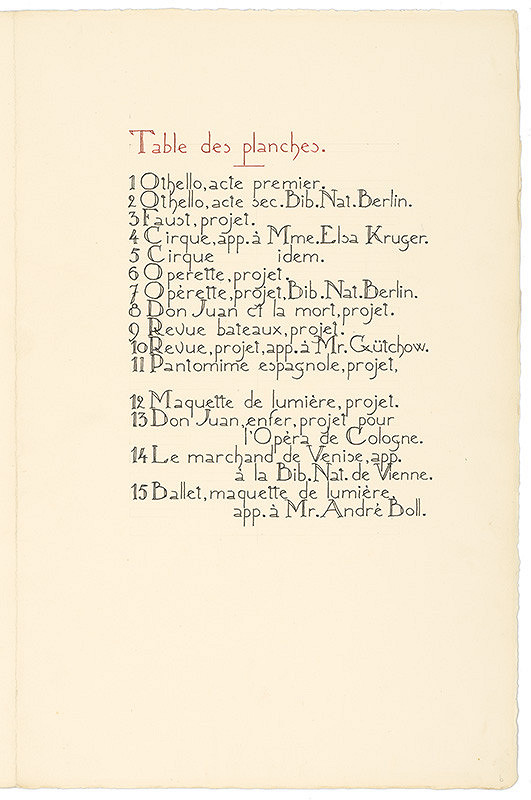 Table des planches.
1 Othello, acte premier.
2 Othello, acte sec. Bib. Nat. Berlin.
3 Faust, projet.
4 Cirque, app. à Mme. Elsa Kruger.
5 Cirque idem.
6 Operette, projet.
7 Opèrette, projet, Bib. Nat. Berlin.
8 Don Juan et la mort, projet.
9 Revue bateaux, projet.
10 Revue, projet, app. à Mr. Gütchow.
11 Pantomime espagnole, projet,
12 Maquette de lumière, projet.
13 Don Juan, enfer, projet pour
l'Opéra de Cologne.
14 Le marchand de Venise, app.
à la Bib. Nat. de Vienne.
15 Ballet, maquette de lumière,
app. à Mr. André Boll.